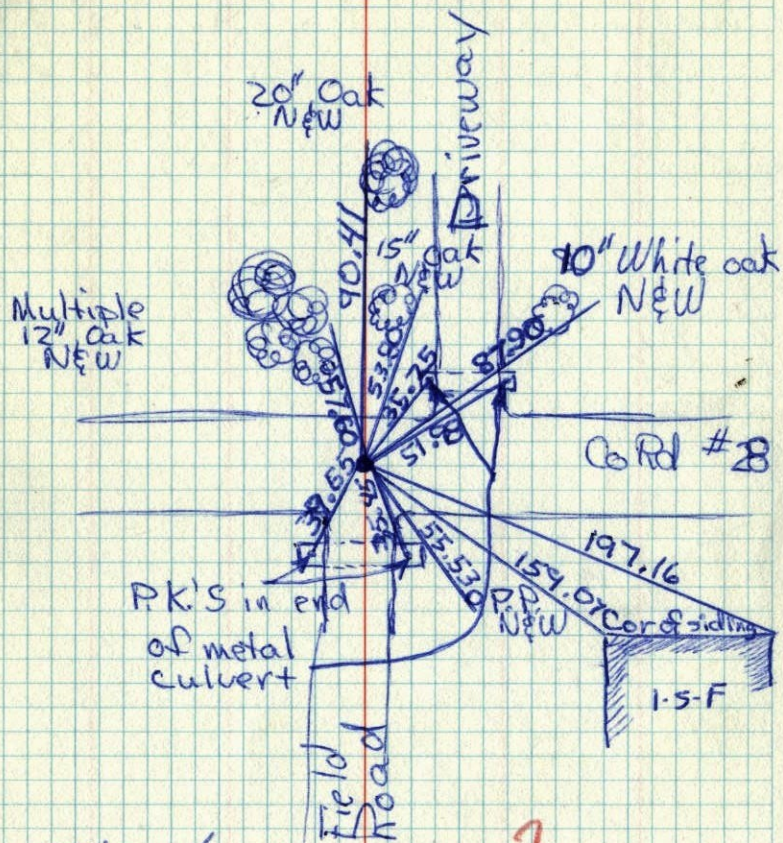 20" Oak
N&W
Driveway
90.41
15" Oak
N&W
10" White oak
N&W
Multiple
12" Oak
N&W
57.60
53.90
35.75
87.90
51.8
Co Rd #28
55.53
159.07
197.16
P.K.'S in end
of metal
culvert
P.P.
N&W
Cor of siding
1-S-F
Field
Road